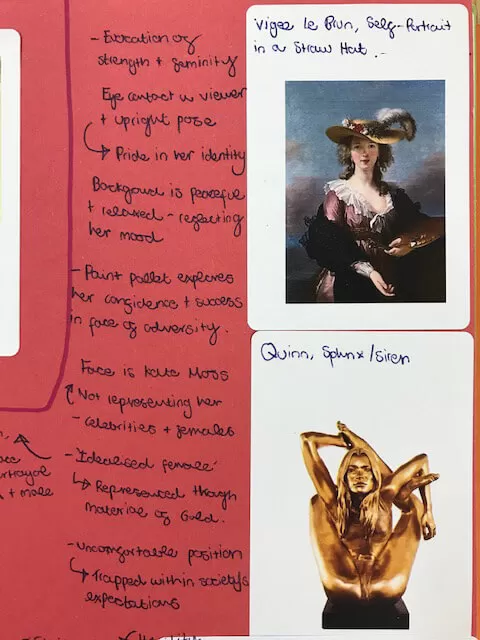 - Evocation of
strength + feminity
Eye contact w viewer
+ upright pose
Pride in her identity
Backgound is peaceful
+ relaxed - reflecting
her mood
- Paint pallet explores
her confidence + success
in face of adversity.
Face is Kate Moss
Not representing her
- celebrities + females
- 'Idealised female'
Represented though
material of Gold.
- uncomfortable position
Trapped within society's
expectations
+ male
Vigee le Brun, Self-Portrait
in a Straw Hat. -
Quinn, Sphnx/Siren